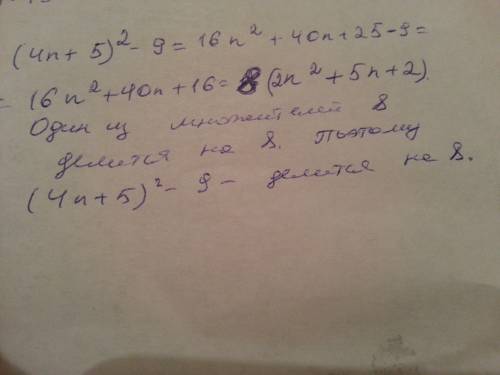 (4n+5)² - 9 = 16n² + 40n + 25 - 9 =
= 16n² + 40n + 16 = 8(2n² + 5n + 2).
Один из множителей 8
делится на 8. Поэтому
(4n+5)² - 9 - делится на 8.